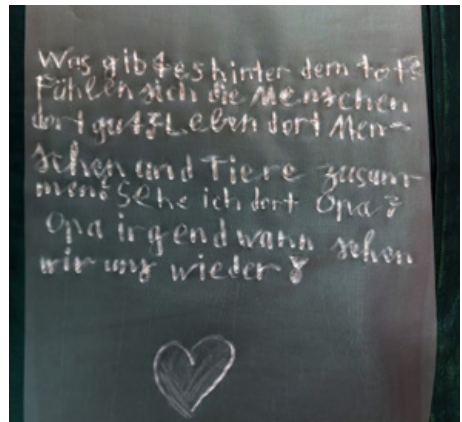 Was gibt es hinter dem tot?
Fühlen sich die Menschen
dort gut? Leben dort Men-
schen und Tiere zusam
men? Sehe ich dort Opa?
Opa irgendwann sehen
wir uns wieder!